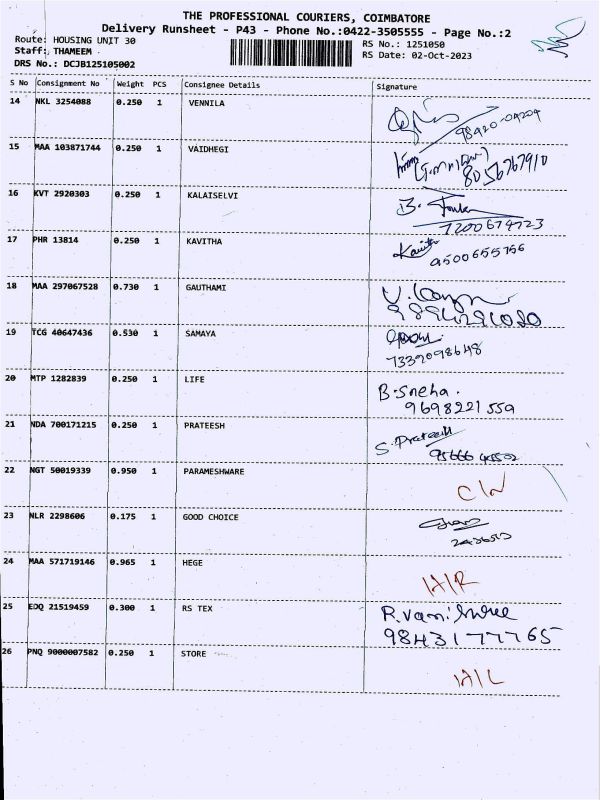 THE PROFESSIONAL COURIERS, COIMBATORE
Delivery Runsheet - P43 - Phone No.:0422-3505555 - Page No.:2
Route: HOUSING UNIT 30
RS No.: 1251050
Staff: THAMEEM
RS Date: 02-Oct-2023
DRS No.: DCJB125105002
S No Consignment No Weight PCS Consignee Details Signature
14 NKL 3254088 0.250 1 VENNILA
98420-04204
15 MAA 103871744 0.250 1 VAIDHEGI
8056767910
16 KVT 2920303 0.250 1 KALAISELVI
7200674723
17 PHR 13814 0.250 1 KAVITHA Kavitha
9500655756
18 MAA 297067528 0.730 1 GAUTHAMI
19 TCG 40647436 0.530 1 SAMAYA
7339098648
20 MTP 1282839 0.250 1 LIFE B.Sneha.
9698221559
21 NDA 700171215 0.250 1 PRATEESH S.Prateesh
22 NGT 50019339 0.950 1 PARAMESHWARE
23 NLR 2298606 0.175 1 GOOD CHOICE
24 MAA 571719146 0.965 1 HEGE
25 EDQ 21519459 0.300 1 RS TEX R.Vanishree
9843177765
26 PNQ 9000007582 0.250 1 STORE